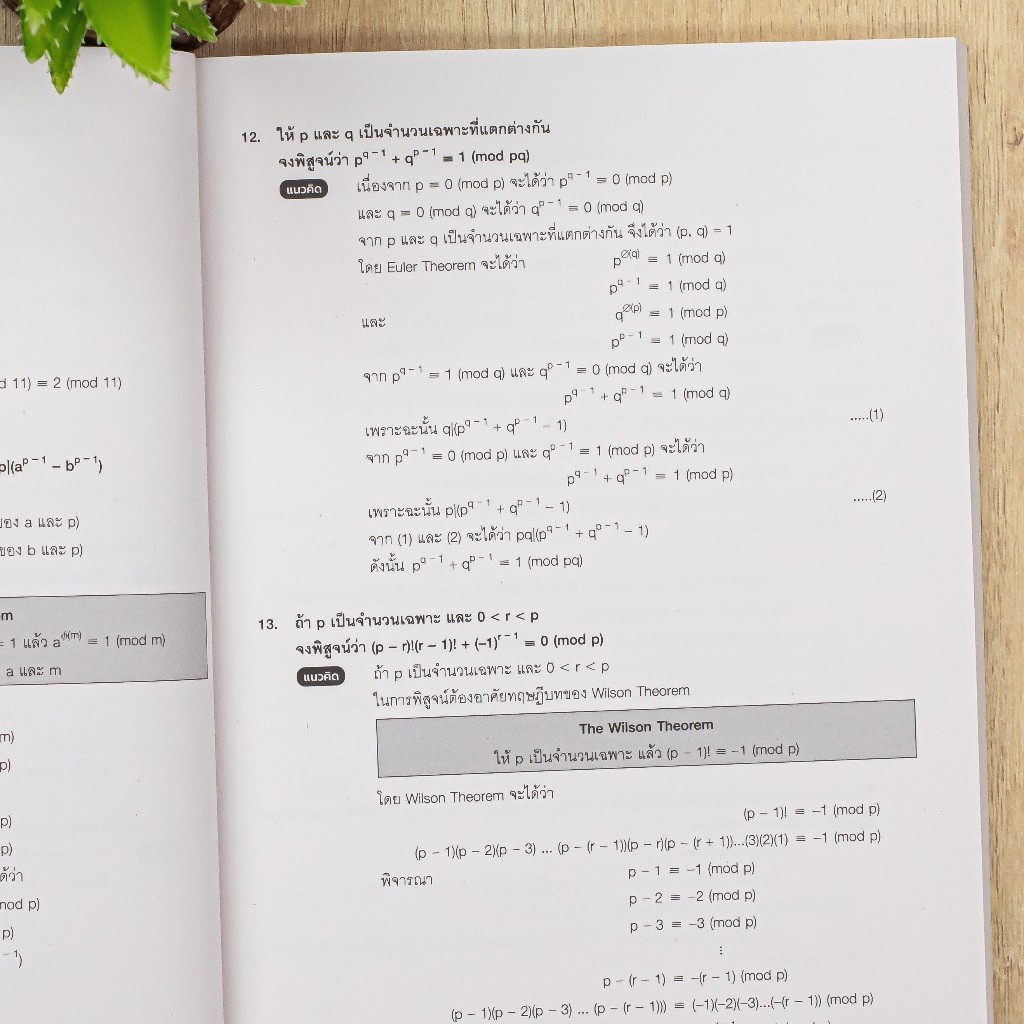 d 11) ≡ 2 (mod 11)
p|(aᵖ⁻¹ – bᵖ⁻¹)
ของ a และ p)
ของ b และ p)
m
= 1 แล้ว aᶲ⁽ᵐ⁾ ≡ 1 (mod m)
a และ m
m)
p)
p)
p)
ด้ว่า
nod p)
p)
⁻¹)
12. ให้ p และ q เป็นจำนวนเฉพาะที่แตกต่างกัน
จงพิสูจน์ว่า p^(q – 1) + q^(p – 1) ≡ 1 (mod pq)
แนวคิด เนื่องจาก p ≡ 0 (mod p) จะได้ว่า p^(q – 1) ≡ 0 (mod p)
และ q ≡ 0 (mod q) จะได้ว่า q^(p – 1) ≡ 0 (mod q)
จาก p และ q เป็นจำนวนเฉพาะที่แตกต่างกัน จึงได้ว่า (p, q) = 1
โดย Euler Theorem จะได้ว่า p^∅(q) ≡ 1 (mod q)
p^(q – 1) ≡ 1 (mod q)
และ q^∅(p) ≡ 1 (mod p)
p^(p – 1) ≡ 1 (mod q)
จาก p^(q – 1) ≡ 1 (mod q) และ q^(p – 1) ≡ 0 (mod q) จะได้ว่า
p^(q – 1) + q^(p – 1) ≡ 1 (mod q)
เพราะฉะนั้น q|(p^(q – 1) + q^(p – 1) – 1) .....(1)
จาก p^(q – 1) ≡ 0 (mod p) และ q^(p – 1) ≡ 1 (mod p) จะได้ว่า
p^(q – 1) + q^(p – 1) ≡ 1 (mod p)
เพราะฉะนั้น p|(p^(q – 1) + q^(p – 1) – 1) .....(2)
จาก (1) และ (2) จะได้ว่า pq|(p^(q – 1) + q^(p – 1) – 1)
ดังนั้น p^(q – 1) + q^(p – 1) ≡ 1 (mod pq)
13. ถ้า p เป็นจำนวนเฉพาะ และ 0 < r < p
จงพิสูจน์ว่า (p – r)!(r – 1)! + (–1)^(r – 1) ≡ 0 (mod p)
แนวคิด ถ้า p เป็นจำนวนเฉพาะ และ 0 < r < p
ในการพิสูจน์ต้องอาศัยทฤษฎีบทของ Wilson Theorem
The Wilson Theorem
ให้ p เป็นจำนวนเฉพาะ แล้ว (p – 1)! ≡ –1 (mod p)
โดย Wilson Theorem จะได้ว่า
(p – 1)! ≡ –1 (mod p)
(p – 1)(p – 2)(p – 3) ... (p – (r – 1))(p – r)(p – (r + 1))...(3)(2)(1) ≡ –1 (mod p)
พิจารณา p – 1 ≡ –1 (mod p)
p – 2 ≡ –2 (mod p)
p – 3 ≡ –3 (mod p)
⋮
p – (r – 1) ≡ –(r – 1) (mod p)
(p – 1)(p – 2)(p – 3) ... (p – (r – 1))) ≡ (–1)(–2)(–3)...(–(r – 1)) (mod p)